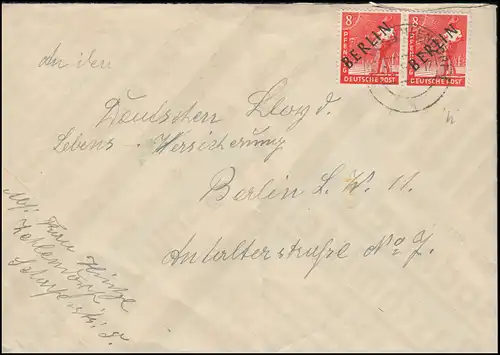 8 PFENNIG BERLIN DEUTSCHE POST
8 PFENNIG BERLIN DEUTSCHE POST
An den
Deutschen Lloyd.
Lebens-Versicherung
Berlin S. W. 11.
Anhalterstraße No 7.
Frau
Zehlendorf